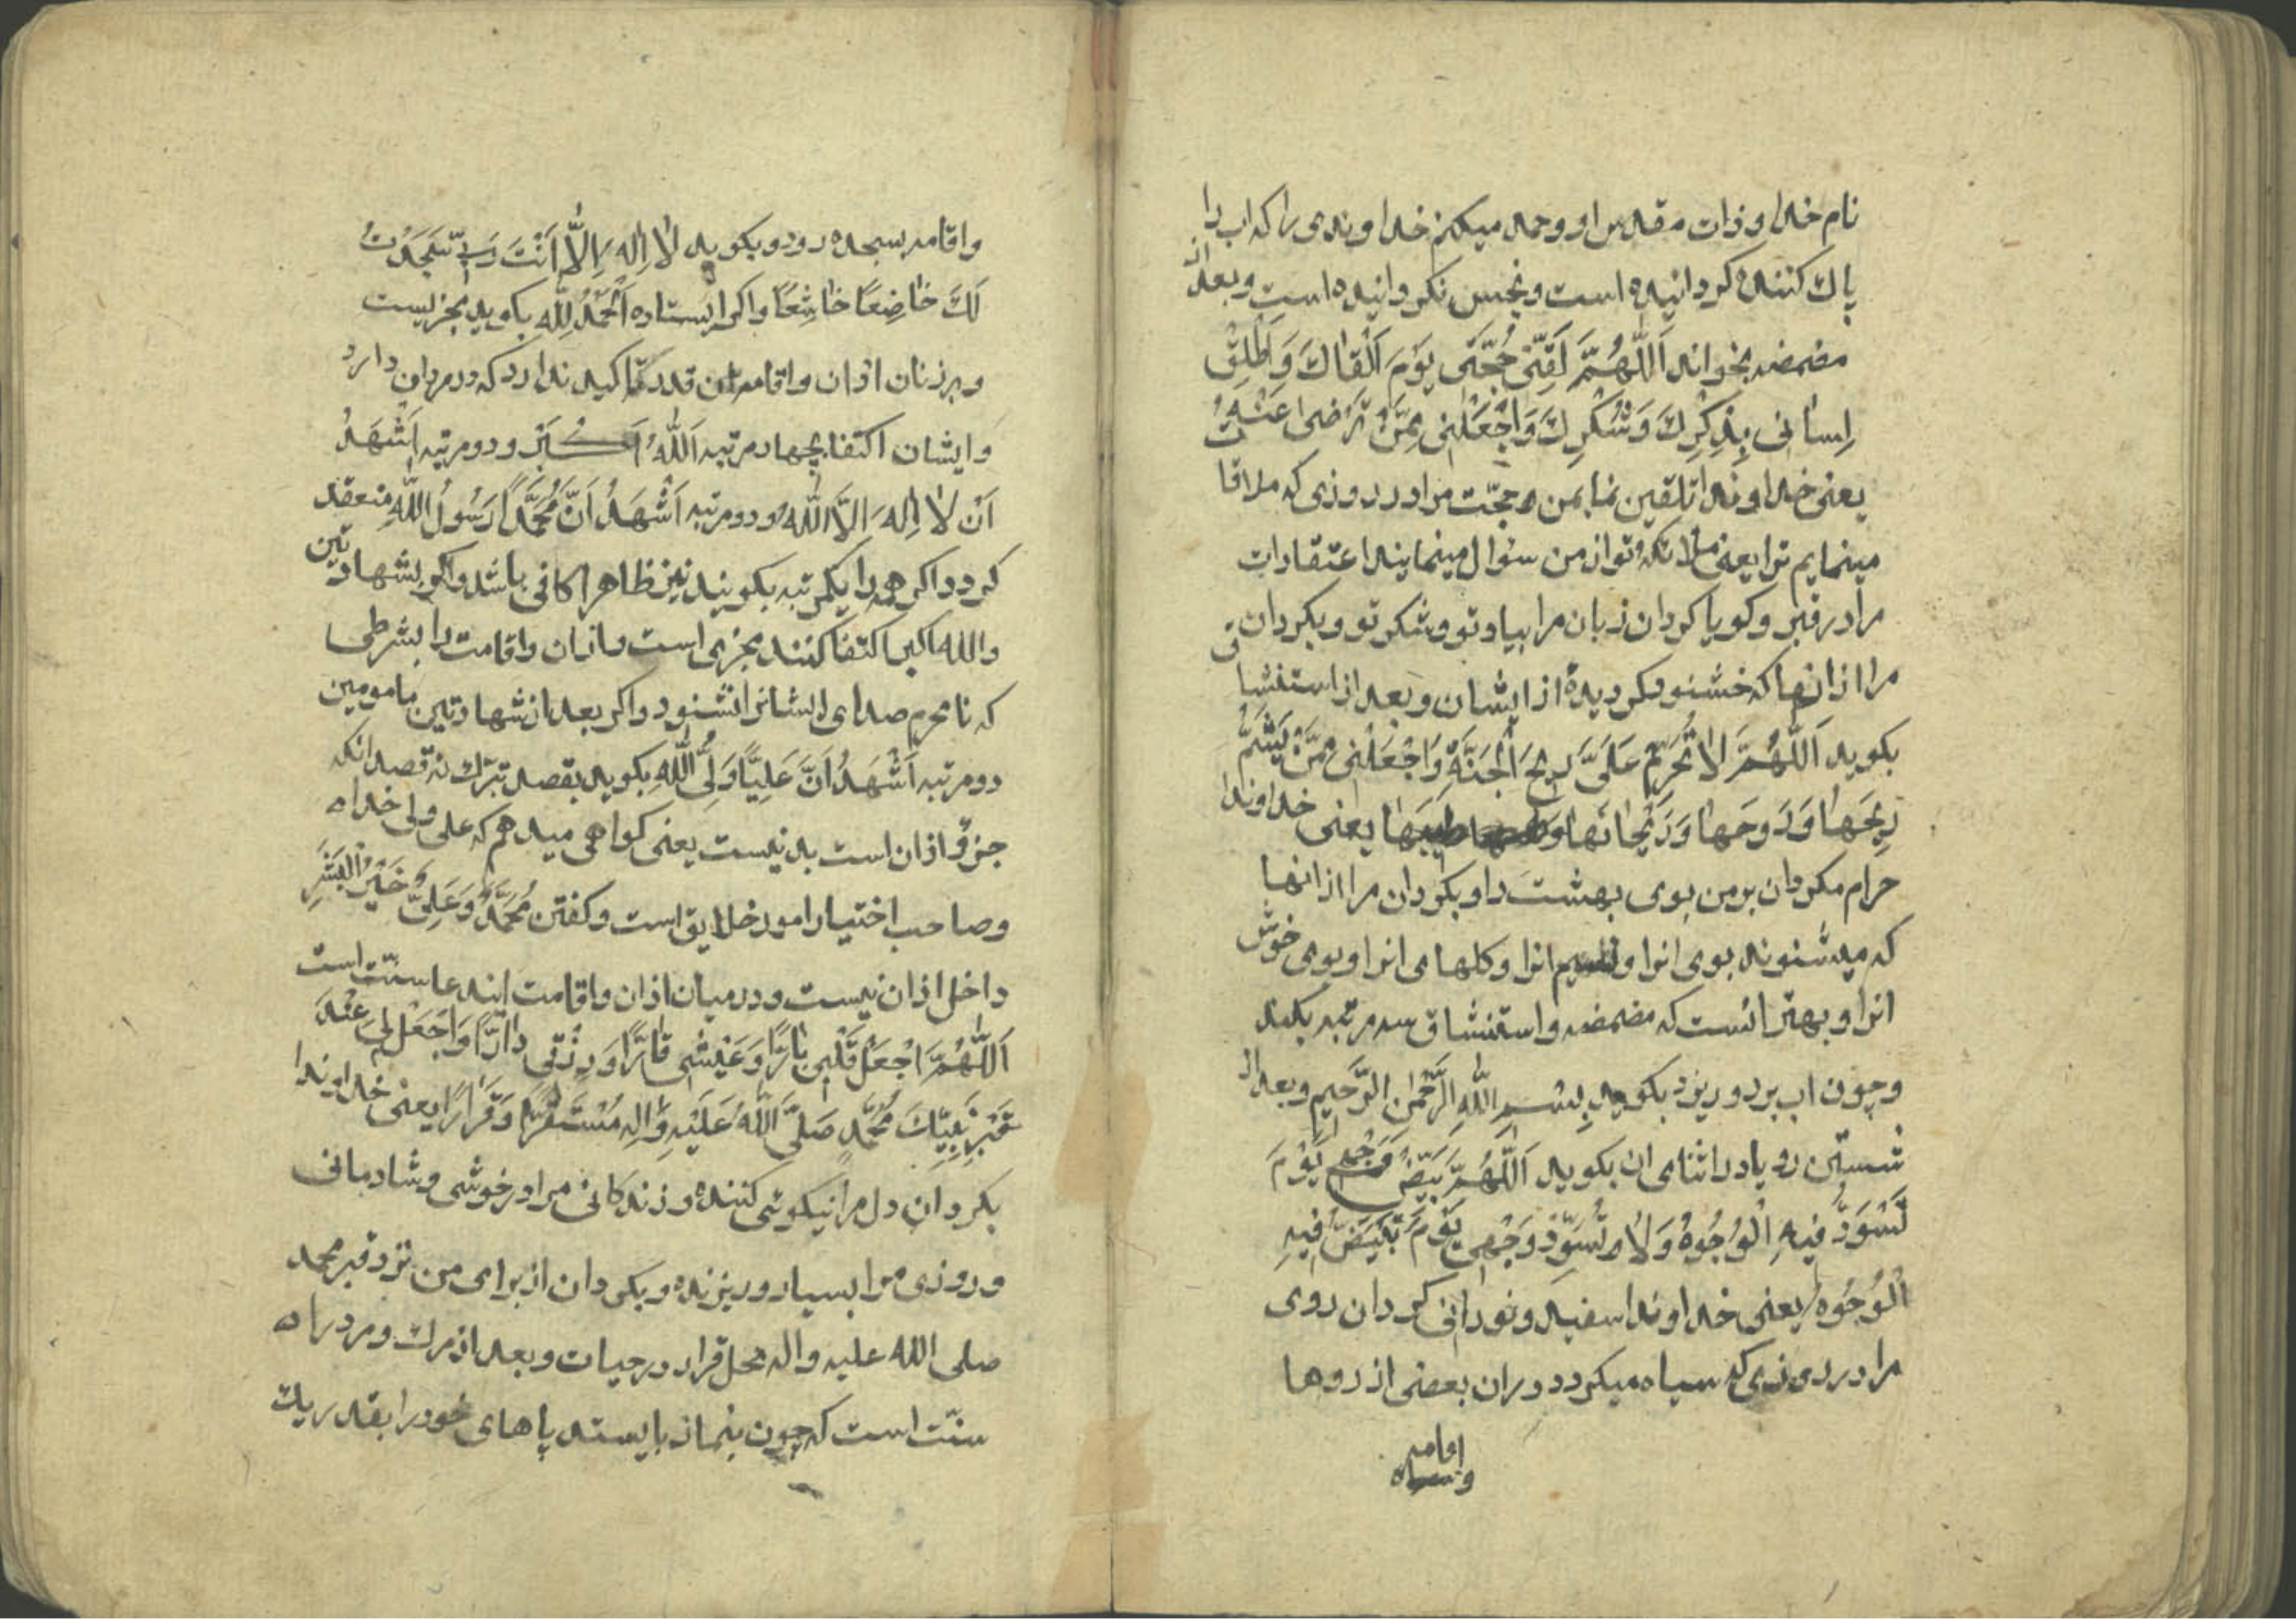 نام خدا و ذات مقدس او و حمد میکنم خداوندی را که اب را
پاك کننده کردانیده است و نجس نکردانیده است و بعد از
مضمضه بخواند اَللّٰهُمَّ لَقِّنّى حُجَّتَى يَوْمَ اَلْقٰاكَ وَاَطْلِقْ
لِسٰانى بِذِكْرِكَ وَشُكْرِكَ وَاجْعَلْنى مِمَّنْ تَرْضىٰ عَنْهُ
یعنی خداوندا تلقین نما بمن حجّت مرا در روزی که ملاقات
مینمایم ترا یعنی ملائکه تو از من سئوال مینمایند اعتقادات
مرا در قبر و کویا کردان زبان مرا بیاد تو و شکر تو و بکردان
مرا از انها که خشنود کردیدهٔ از ایشان و بعد از استنشاق
بکوید اَللّٰهُمَّ لاٰ تُحَرِّمْ عَلَىَّ ريحَ الْجَنَّةِ وَاجْعَلْنى مِمَّنْ يَشَمُّ
رِيحَهٰا وَرَوحَهٰا وَرَيْحٰانَهٰا وَطيبَهٰا یعنی خداوندا
حرام مکردان بر من بوی بهشت را و بکردان مرا از انها
که میشنوند بوی انرا و نسیم انرا و کلهای انرا و بوی خوش
انرا و بهتر انست که مضمضه و استنشاق سه مرتبه بکند
و چون اب بر رو ریزد بکوید بِسْمِ اللّٰهِ الرَّحْمٰنِ الرَّحيمِ و بعد از
شستن رو یا در اثنای ان بکوید اَللّٰهُمَّ بَيِّضْ وَجْهى يَوْمَ
تَسْوَدُّ فيهِ الْوُجُوهُ وَلاٰ تُسَوِّدْ وَجْهى يَوْمَ تَبْيَضُّ فيهِ
الْوُجُوهُ یعنی خداوندا سفید و نورانی کردان روی
مرا در روزی که سیاه میکردد در ان بعضی از روها
واقامه بسجده رود و بکوید لاٰ اِلٰهَ اِلاّٰ اَنْتَ رَبّى سَجَدْتُ
لَكَ خٰاضِعًا خٰاشِعًا و اکر ایستاده اَلْحَمْدُ لِلّٰهِ بکوید مجزیست
و بر زنان اذان و اقامه ان قدر تاکید ندارد که در مردان دارد
و ایشان اکتفا بچهار مرتبه اَللّٰهُ اَكْبَر و دو مرتبه اَشْهَدُ
اَنْ لاٰ اِلٰهَ اِلاَّ اللّٰهُ و دو مرتبه اَشْهَدُ اَنَّ مُحَمَّدًا رَسُولُ اللّٰهِ منعقد
کردد اکر همه را یکمرتبه بکویند نیز ظاهرا کافی باشد و اکر بشهادتین
والله اکبر اکتفا کنند مجزی است و اذان و اقامت را بشرطی
که نامحرم صدای ایشانرا نشنود و اکر بعد از شهادتین مامومین
دو مرتبه اَشْهَدُ اَنَّ عَلِيًّا وَلِىُّ اللّٰهِ بکوید بقصد تبرّك نه قصد انکه
جزؤ اذان است بد نیست یعنی کواهی میدهم که علی ولی خداه
و صاحب اختیار امور خلایق است و کفتن مُحَمَّدٌ وَعَلِىٌّ خَيْرُ الْبَشَرِ
داخل اذان نیست و در میان اذان و اقامت ایند عا سنّت است
اَللّٰهُمَّ اجْعَلْ قَلْبى بٰارًّا وَعَيْشى قٰارًّا وَرِزْقى دٰارًّا وَاجْعَلْ لى عِنْدَ
قَبْرِ نَبِيِّكَ مُحَمَّدٍ صَلَّى اللّٰهُ عَلَيْهِ وَالِهِ مُسْتَقَرًّا وَقَرٰارًا یعنی خداوندا
بکردان دل مرا نیکوئی کننده و زندکانی مرا در خوشی و شادمانی
و روزی مرا بسیار و ریزنده و بکردان از برای من نزد قبر محمد
صلی الله علیه واله محل قرار در حیات و بعد از مرك و مر دراه
سنّت است که چون بنماز بایستد پاهای خود را بقدر یك